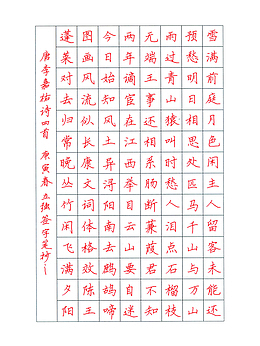 雪满前庭月色闲主人留客未能还
预愁明日相思处匹马千山与万山
雨过青山猿叫时愁人泪点石榴枝
无端王事还相系肠断蒹葭君不知
两年谪宦在江西举目云山要自迷
今日始知风土异浔阳南去鹧鸪啼
图画风流似长康文词体格效陈王
蓬莱对去归常晚丛竹闲飞满夕阳
唐李嘉祐诗四首 庚寅春立独签字笔抄